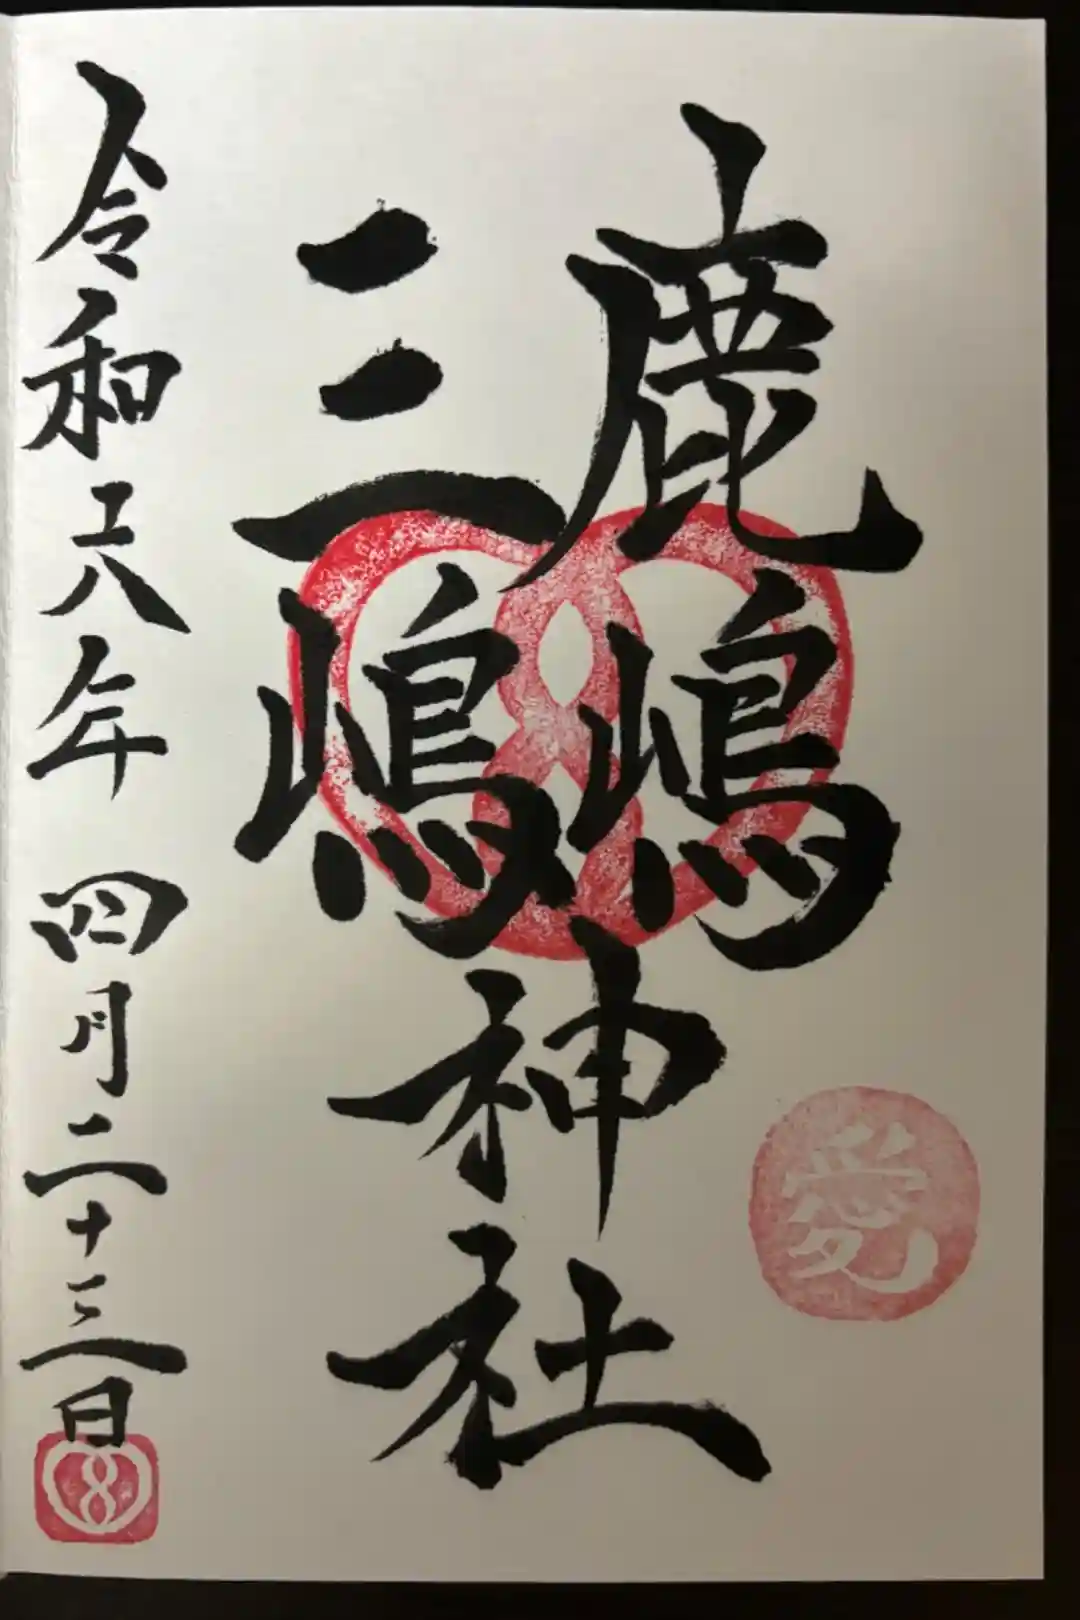 鹿嶋
三嶋
神社
愛
令和六年 四月二十三日